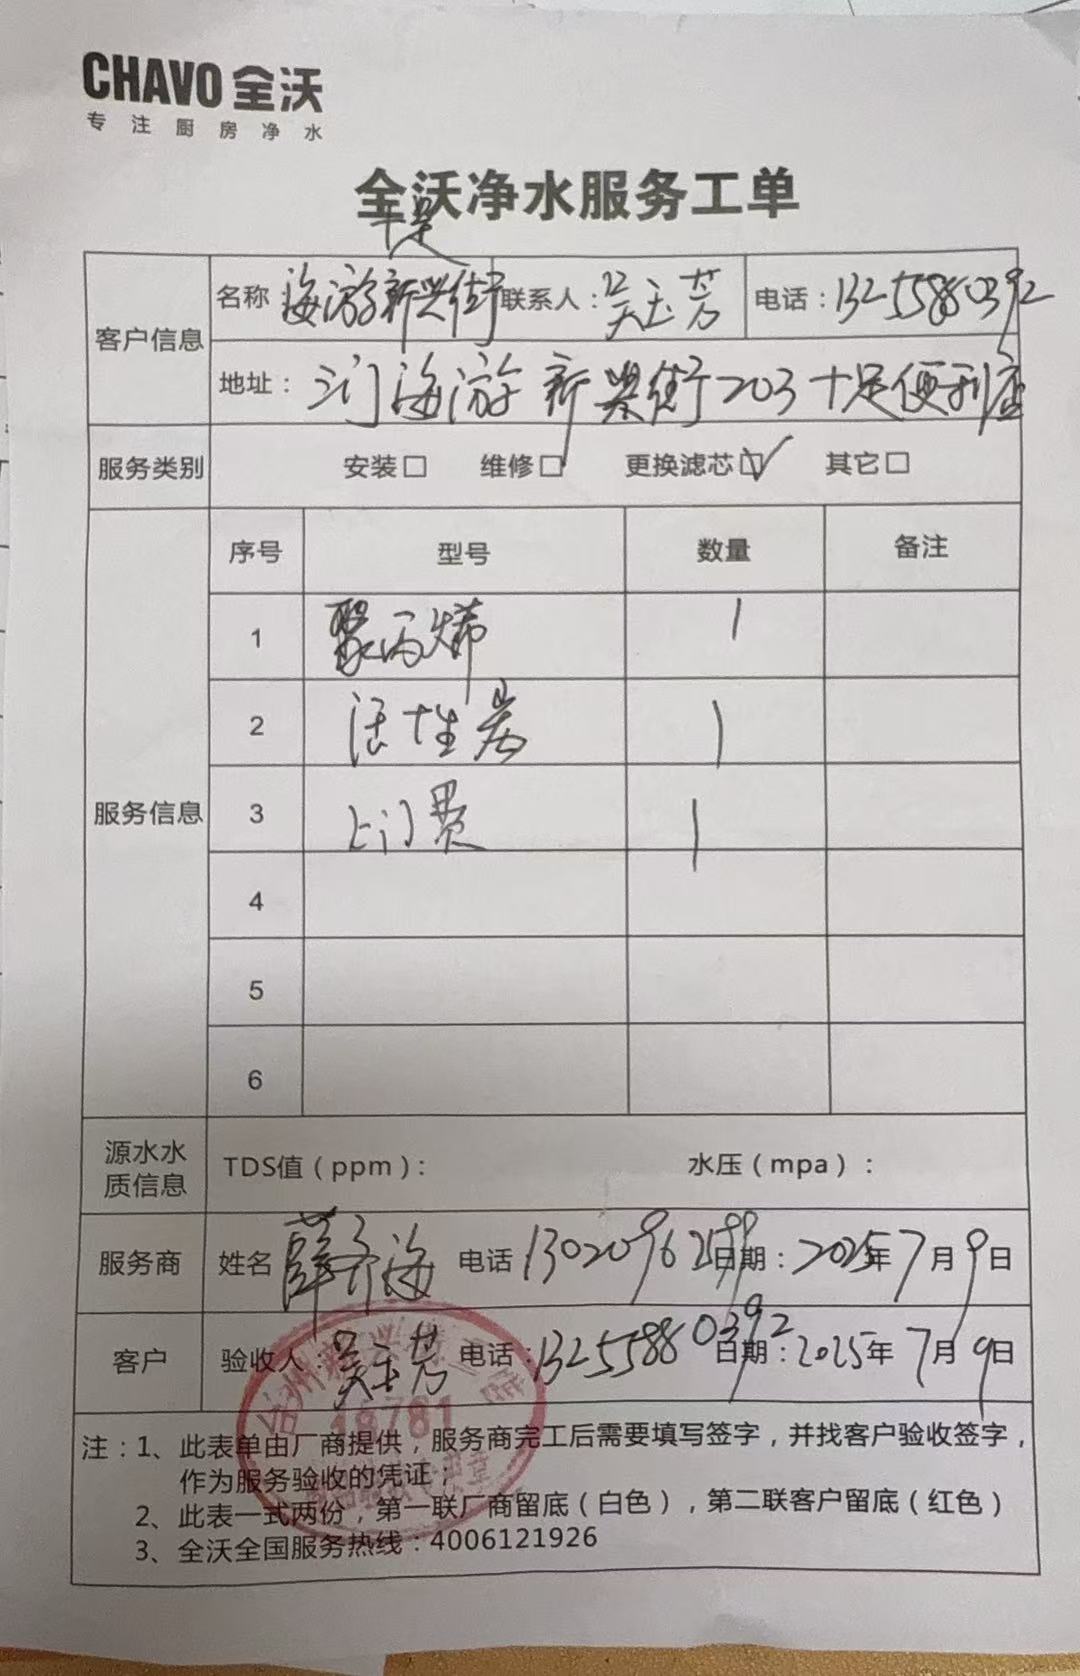 CHAVO 全沃
专注厨房净水
全沃净水服务工单
十足
客户信息 名称：海游新兴街 联系人：吴玉芳 电话：13255880392
地址：三门海游新兴街203十足便利店
服务类别 安装□ 维修□ 更换滤芯☑ 其它□
服务信息 序号 型号 数量 备注
1 聚丙烯 1
2 活性炭 1
3 上门费 1
4
5
6
源水水质信息 TDS值（ppm）： 水压（mpa）：
服务商 姓名 薛齐海 电话 日期：2025年7月9日
客户 验收人：吴玉芳 电话：13255880392 日期：2025年7月9日
台州新兴街三店
19781
注：1、此表单由厂商提供，服务商完工后需要填写签字，并找客户验收签字，
作为服务验收的凭证；
2、此表一式两份，第一联厂商留底（白色），第二联客户留底（红色）
3、全沃全国服务热线：4006121926